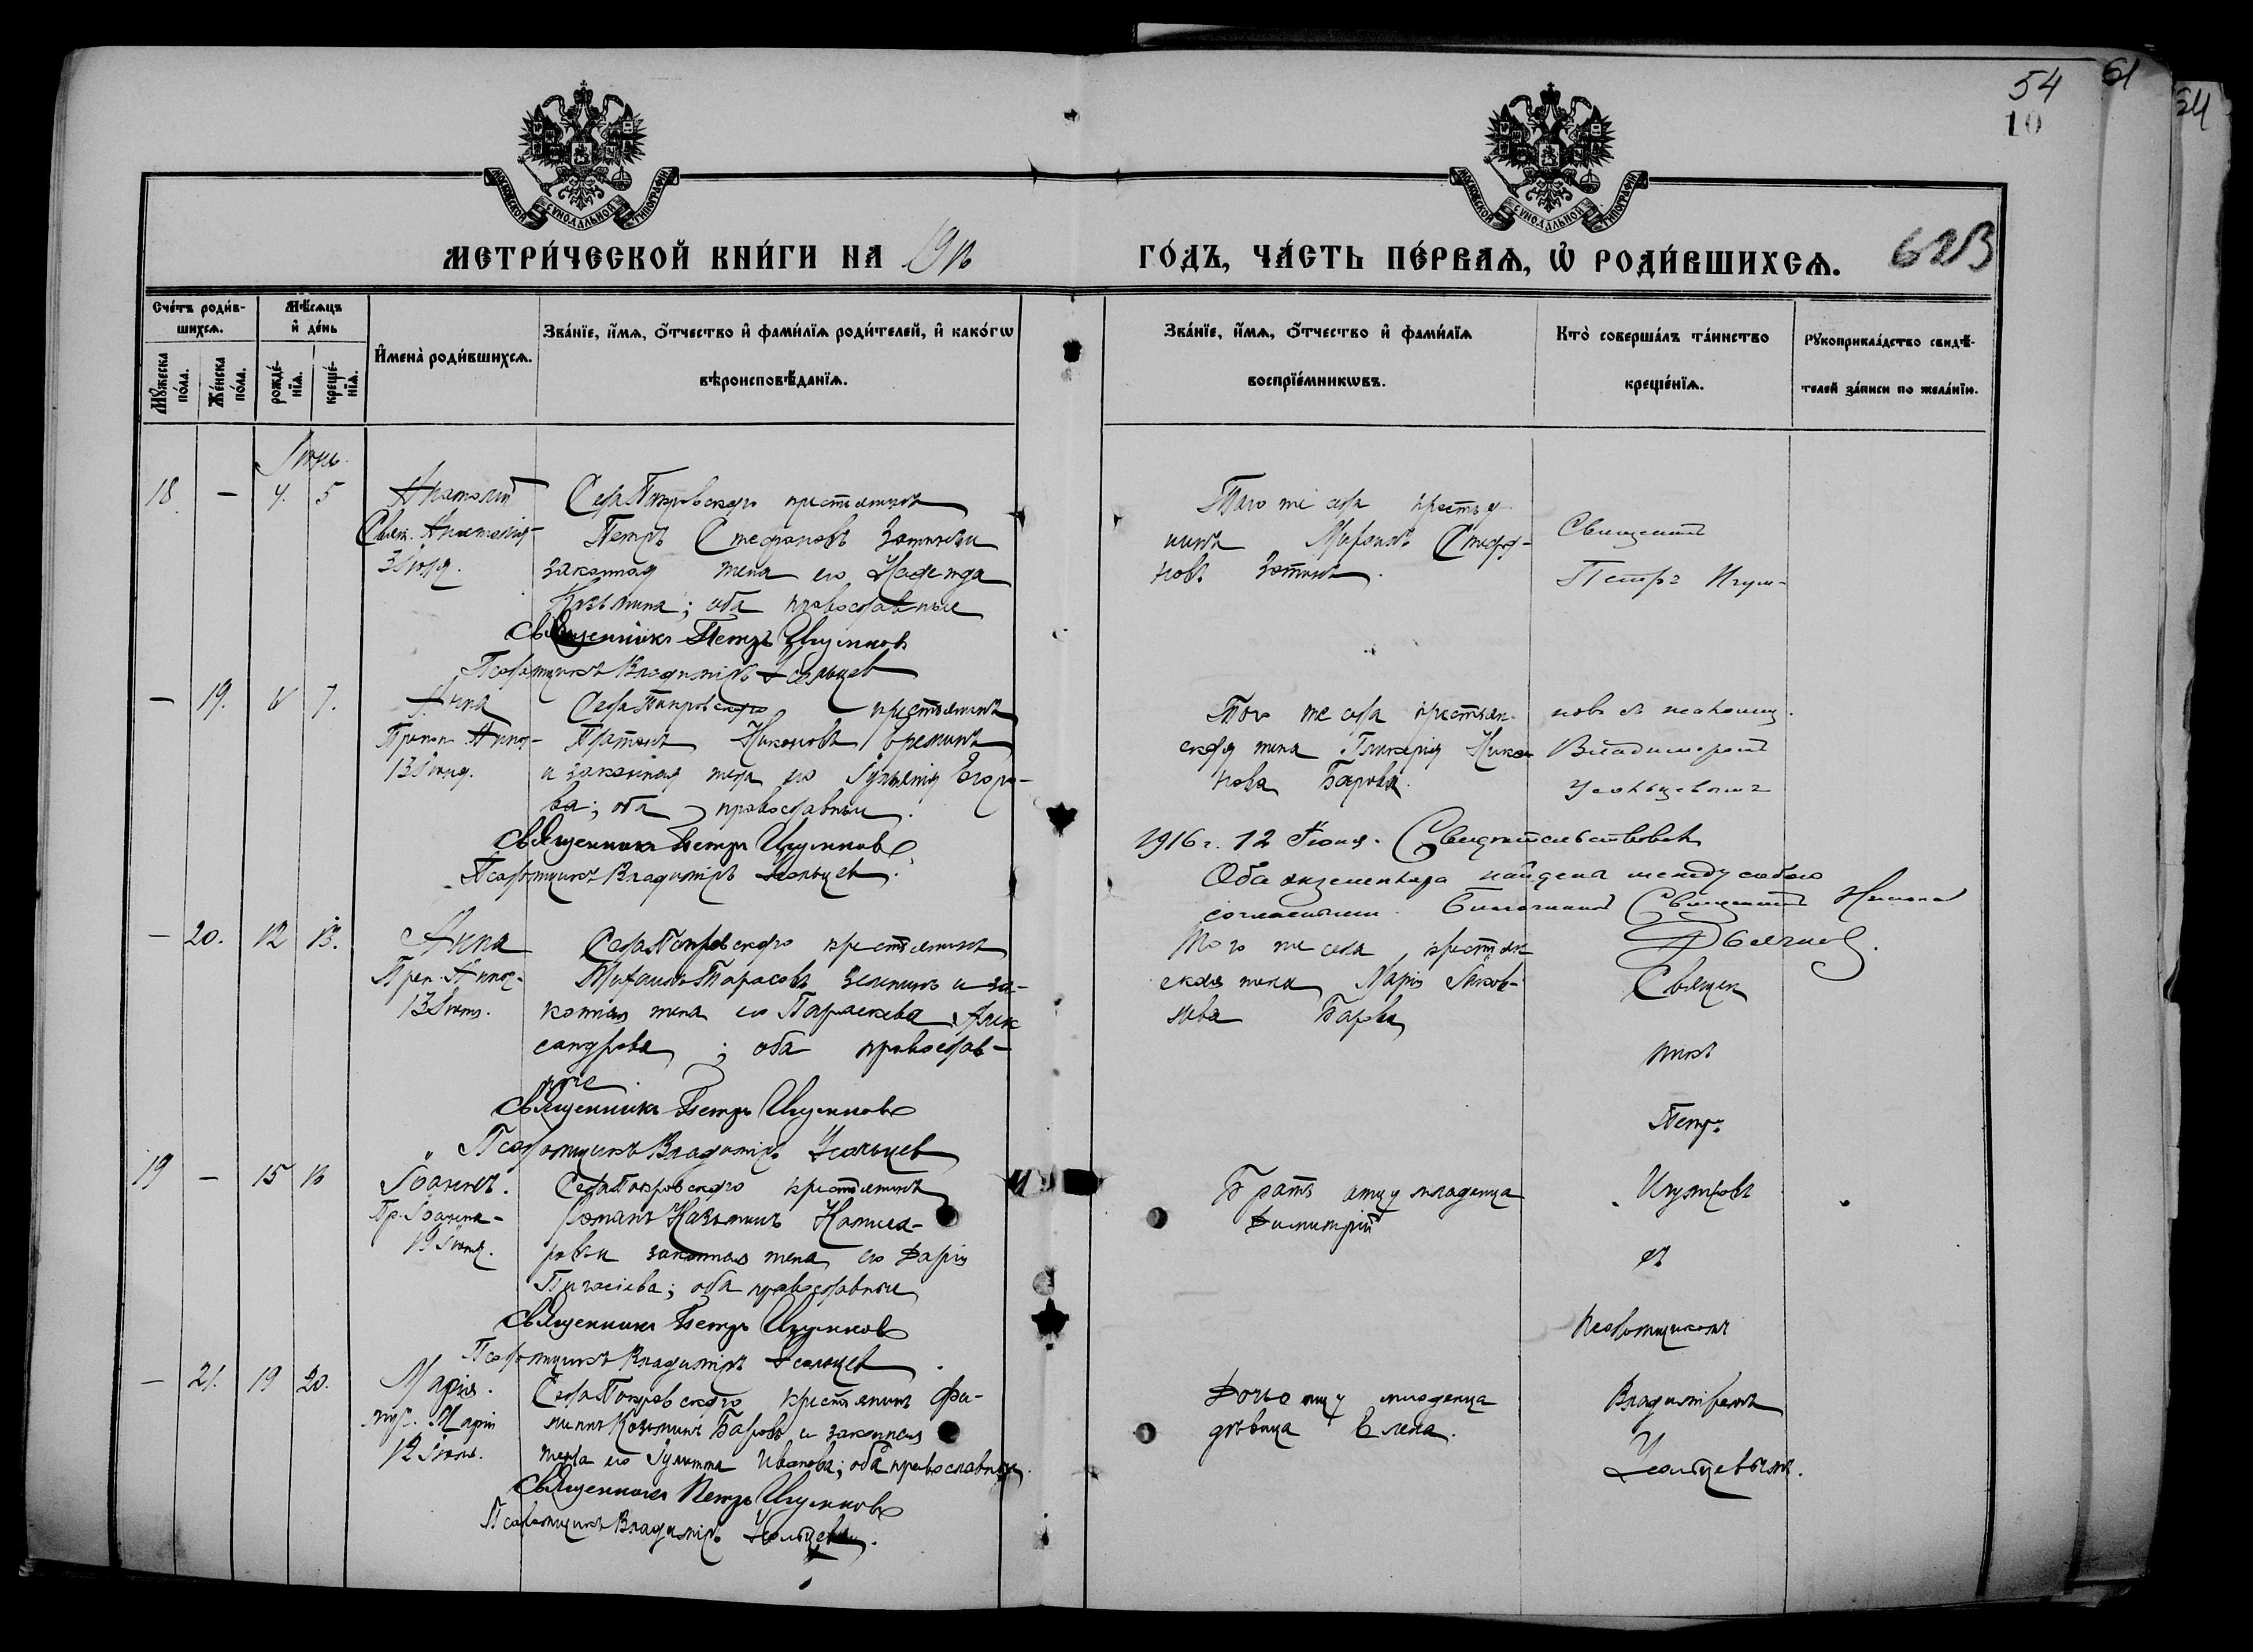 54
61
54
10
МОСКОВСКОЙ СѴНОДАЛЬНОЙ ТИПОГРАФІИ
МОСКОВСКОЙ СѴНОДАЛЬНОЙ ТИПОГРАФІИ
МЕТРИ́ЧЕСКОЙ КНИ́ГИ НА 1916
ГО́ДЪ, ЧА́СТЬ ПЕ́РВАѦ, Ѡ РОДИ́ВШИХСѦ.
Сче́тъ роди́в-
шихсѧ.
Мѣ́сѧцъ
и҆ де́нь
Мꙋ́жеска
по́ла.
Же́нска
по́ла.
рожде́-
нїѧ.
креще́-
нїѧ.
И҆мена̀ роди́вшихсѧ.
Зва́нїе, и҆́мѧ, ѻ҆́тчество и҆ фами́лїѧ роди́телей, и҆ како́гѡ
вѣроисповѣ́данїѧ.
Зва́нїе, и҆́мѧ, ѻ҆́тчество и҆ фами́лїѧ
воспрїе́мникѡвъ.
Кто̀ соверша́лъ та́инство
креще́нїѧ.
Рꙋкоприкла́дство свидѣ́-
телей за́писи по жела́нїю.
Іюнь.
18 — 4. 5 Анатолій
Свящ. Анатолія
3 Іюля.
Села Покровскаго крестьянинъ
Петръ Стефановъ Зотинъ и
законная жена его Надежда
Козьмина; оба православные
Священникъ Петръ Игумновъ
Псаломщикъ Владиміръ Усольцев
Того же села крестья-
нинъ Миронъ Стефа-
новъ Зотинъ.
Священникъ
Петръ Игум-
— 19. 6 7. Анна
Препод. Анны
13 Іюня.
Села Покровского крестьянинъ
Платонъ Никоновъ Еремин
и законная жена его Іуліанія Егоро-
ва; оба православные.
Священникъ Петръ Игумновъ
Псаломщикъ Владиміръ Усольцев.
Того же села крестьян-
ская жена Гликерія Нико-
нова Барова.
новъ съ псаломщ.
Владиміромъ
Усольцевымъ
1916 г. 12 Іюня. Свидѣтельствовалъ
Оба экземпляра найдены между собою
согласными. Благочинный Священникъ
— 20. 12 13. Анна
Преп. Анны
13 Іюня.
Села Покровского крестьянинъ
Михаилъ Тарасовъ и за-
конная жена его Параскева Алек
сандрова; оба православ-
ные.
Священникъ Петръ Игумновъ
Псаломщикъ Владиміръ Усольцев
Того же села крестьян
ская жена Марія Яков-
лева Барова
Священ
никъ
Петръ
19 — 15 16 Іоаннъ.
Пр. Іоанна
19 Іюня.
Села Покровского крестьянинъ
Романъ Казьминъ
ровъ и законная жена его Дарія
Пигасіева; оба православные
Священникъ Петръ Игумновъ
Псаломщикъ Владиміръ Усольцев.
Братъ отцу младенца
Димитрій
Игумновъ
съ
псаломщикомъ
— 21. 19 20. Марія.
мур. Марія
12 Іюля.
Села Покровского крестьянинъ Фи-
липпъ Козьминъ Баровъ и законная
жена его Іулитта Иванова; оба православные.
Священникъ Петръ Игумновъ
Псаломщикъ Владиміръ Усольцевъ.
Дочь отцу младенца
дѣвица Елена.
Владиміромъ
Усольцевымъ.